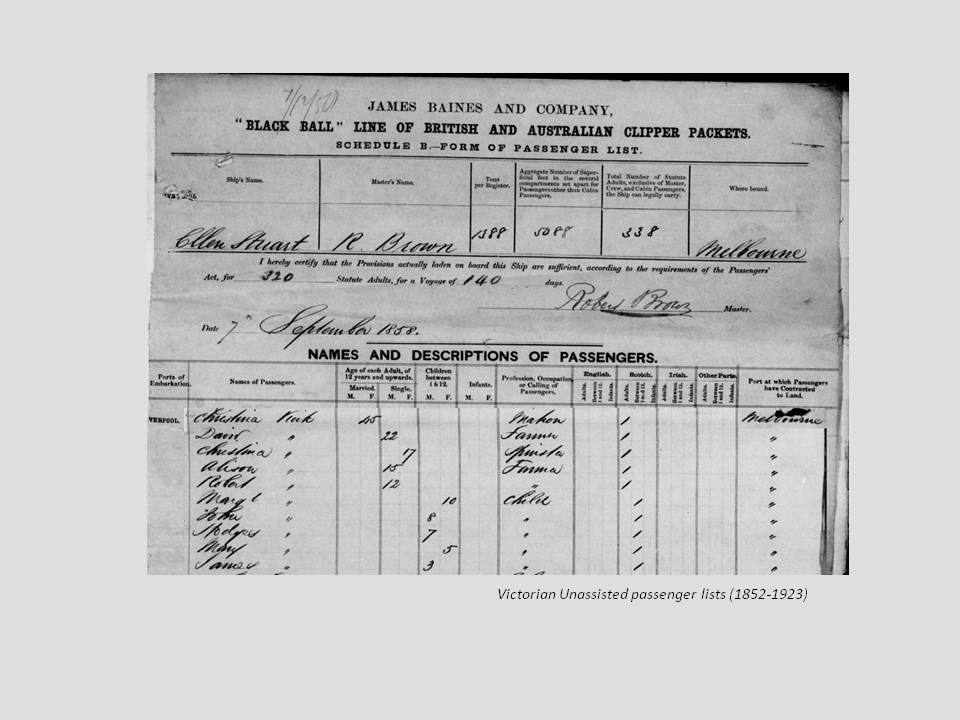 7/12/58
JAMES BAINES AND COMPANY,
"BLACK BALL" LINE OF BRITISH AND AUSTRALIAN CLIPPER PACKETS.
SCHEDULE B.—FORM OF PASSENGER LIST.
Ship's Name. Master's Name. Tons per Register. Aggregate Number of Superficial feet in the several compartments set apart for Passengers other than Cabin Passengers. Total Number of Statute Adults, exclusive of Master, Crew, and Cabin Passengers, the Ship can legally carry. Where bound.
Ellen Stuart R. Brown 1388 5088 338 Melbourne
I hereby certify that the Provisions actually laden on board this Ship are sufficient, according to the requirements of the Passengers'
Act, for 320 Statute Adults, for a Voyage of 140 days.
Robert Brown Master.
Date 7th September 1858.
NAMES AND DESCRIPTIONS OF PASSENGERS.
Ports of Embarkation. Names of Passengers. Age of each Adult, of 12 years and upwards. Married. M. F. Single. M. F. Children between 1 & 12. M. F. Infants. M. F. Profession, Occupation or Calling of Passengers. English. Adults. Between 1 and 12. Infants. Scotch. Adults. Between 1 and 12. Infants. Irish. Adults. Between 1 and 12. Infants. Other Parts. Adults. Between 1 and 12. Infants. Port at which Passengers have Contracted to Land.
VERPOOL. Christina 45 Matron 1 Melbourne
David " 22 Farmer 1 "
Christina " 17 Spinster 1 "
Alison " 15 Farmer 1 "
Robert " 12 " 1 "
Margt " 10 Child 1 "
John " 8 " 1 "
" 7 " 1 "
Mary " 5 " 1 "
James " 3 " 1 "
Victorian Unassisted passenger lists (1852-1923)